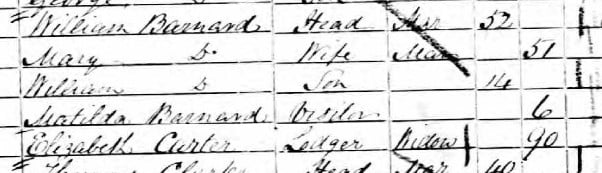 George
William Barnard Head Mar 52
Mary Do Wife Mar 51
William Do Son 14
Matilda Barnard Visitor 6
Elizabeth Curter Lodger Widow 90
Head Mar 40